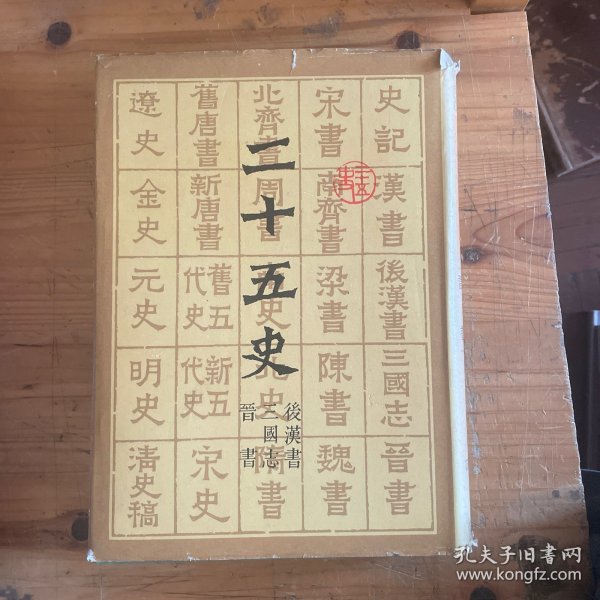 二十五史
後漢書
三國志
晉書
二十五史
史記
漢書
後漢書
三國志
晉書
宋書
南齊書
梁書
陳書
魏書
北齊書
周書
史
北史
隋書
舊唐書
新唐書
舊五代史
新五代史
宋史
遼史
金史
元史
明史
清史稿
孔夫子旧书网
www.kongfz.com